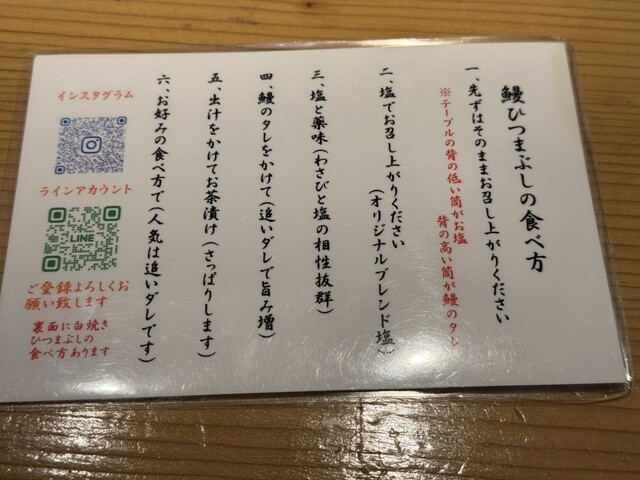 鰻ひつまぶしの食べ方
一、先ずはそのままお召し上がりください
※テーブルの背の低い筒がお塩
背の高い筒が鰻のタレ
二、塩でお召し上がりください
(オリジナルブレンド塩)
三、塩と薬味(わさびと塩の相性抜群)
四、鰻のタレをかけて(追いダレで旨み増)
五、出汁をかけてお茶漬け(さっぱりします)
六、お好みの食べ方で(人気は追いダレです)
インスタグラム
ラインアカウント
LINE
ご登録よろしくお
願い致します
裏面に白焼き
ひつまぶしの
食べ方あります